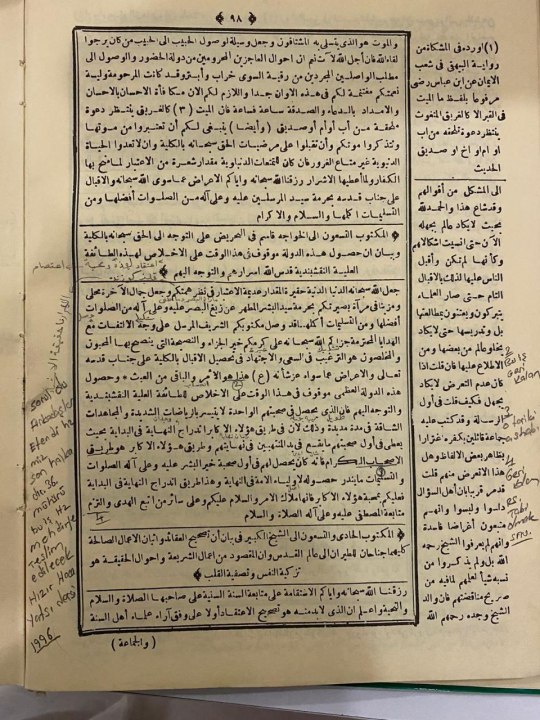 ﴿ ٩٨ ﴾
والموت هو الذى يتسلى به المشتاقون وجعل وسيلة لوصول الحبيب الى الحبيب من كان يرجوا
لقاء الله فان أجل الله لآت نم ان احوال العاجزين المحرومين من دولة الحضور والوصول الى
مطالب الواصلين المجردين من رقية السوى خراب وأبتر وقد كانت المرحومة وليـة
نعمتكم مغتنمة لكم فى هذه الاوان جدا واللازم لكم الان مكافأة الاحسان بالاحسان
والامداد بالدعاء والصدقة ساعة فساعة فان الميت (٣) كالغريق ينتظر دعوة
تلحقه من أب أوأم أو صديق (وأيضا) ينبغى لكم أن تعتبروا من موتها
وتتذكروا موتكم وأن تقبلوا على مرضيات الحق سبحانه بالكلية وان لا تعدوا الحياة
الدنيوية غير متاع الغرور فان كان للتمتعات الدنياوية مقدار شعرة من الاعتبار لما منح بها
الكفار ولما أعطيها الاشرار رزقنا الله سبحانه واياكم الاعراض عما سوى الله سبحانه والاقبال
على جناب قدسه بحرمة سيد المرسلين عليه وعلى آله من الصلوات أفضلها ومن
التسليمات اكملها والسلام والاكرام
﴿ المكتوب التسعون الى الخواجه قاسم فى التحريض على التوجه الى الحق سبحانه بالكلية
وبيان ان حصول هذه الدولة موقوف فى هذا الوقت على الاخلاص لهذه الطائفة
العلية النقشبندية قدس الله اسرارهم والتوجه اليهم ﴾
جعل الله سبحانه الدنيا الدنية حقيرة المقدار عديمة الاعتبار فى نظر همتكم وجعل جمال الآخرة محلى
ومزينا فى مرآة بصيرتكم بحرمة سيد البشر المطهر عن زيغ البصر عليه وعلى آله من الصلوات
أفضلها ومن التسليمات أكملها قد وصل مكتوبكم الشريف المرسل على وجه الالتفات مع
الهدايا المحترمة جزاكم الله سبحانه على كرمكم خير الجزاء والنصيحة التى ينصح بها المحبون
والمخلصون هو الترغيب فى السعى والاجتهاد فى تحصيل الاقبال بالكلية على جناب قدسه
تعالى والاعراض عما سواه عز شأنه (ع) هذا هو الامر والباقى من العبث * وحصول
هذه الدولة العظمى موقوف فى هذا الوقت على الاخلاص للطائفة العلية النقشبندية
والتوجه اليهم فان الذى يحصل فى صحبتهم الواحدة لا يتيسر بالرياضات الشديدة والمجاهدات
الشاقة فى مدة مديدة وذلك لأن فى طريق هؤلاء الاكابر اندراج النهاية فى البداية بحيث
يعطى فى أول صحبتهم ما يقسم فى يد المنتهين فى نهايتهم وطريق هؤلاء الاكابر هو طريق
الاصحاب الكرام فانه كان يحصل لهم فى أول صحبة خير البشر عليه وعلى آله الصلوات
والتسليمات ما يندر حصوله لاولياء الامة فى النهاية وهذا طريق اندراج النهاية فى البداية
فعليكم بمحبة هؤلاء الاكابر فانها ملاك الامر والسلام عليكم وعلى سائر من اتبع الهدى والتزم
متابعة المصطفى عليه وعلى آله الصلاة والسلام
﴿ المكتوب الحادى والتسعون الى الشيخ الكبير فى بيان أن تصحيح العقائد واتيان الاعمال الصالحة
كليهما جناحان للطيران الى عالم القدس وان المقصود من اعمال الشريعة واحوال الحقيقة هو
تزكية النفس وتصفية القلب ﴾
رزقنا الله سبحانه واياكم الاستقامة على متابعة السنة السنية على صاحبها الصلاة والسلام
والتحية واعلم ان الذى لابد منه هو تصحيح الاعتقاد أولا على وفق آراء علماء أهل السنة
(والجماعة)
(١) اورده فى المشكاة من
رواية البيهقى فى شعب
الايمان عن ابن عباس رضى
مرفوعا بلفظ ما الميت
فى القبر الا كالغريق المتغوث
ينتظر دعوة تلحقه من اب
او ام او اخ او صديق
الحديث
الى المشكل من أقوالهم
وقد شاع هذا والحمد لله
بحيث لا يكاد عالم يجهله
الآن حتى انسيت اشكالاتهم
وكأنها لم تكن وأقبل
الناس عليها لذلك بالاقبال
التام حتى صار العلماء
يتبركون ويعتنون بمطالعتها
بل وتدريسها حتى لا يكاد
يخلو عالم من بعضها ومن
الاطلاع عليها فان قلت اذا
كان عدم التعرض لا يكاد
يجهل فكيف قلت فى أول
الرسالة وقد كتب عليه
جماعة قائلين بكفره اغترارا
بظاهر بعض الالفاظ وهل
هذا الا تعرض منهم قلت
قدمر قريبا ان أهل السؤال
دلسوا ولبسوا وانهم
متعنون أغراضا فاسدة
وانهم لم يعرفوا الشيخ رحمه
الله ولم يذكروا من
نسبه شيأ لعلهم لما فيه من
صريح مناقضتهم فان والد
الشيخ وجده رحمهم الله
sonu da
Arkadaşlar
son halka
36
teslim
edilecek
Hızır Hoca
Yatsı dersi
1996
2
Geri
Kalan
3
4
Geri
Kalan